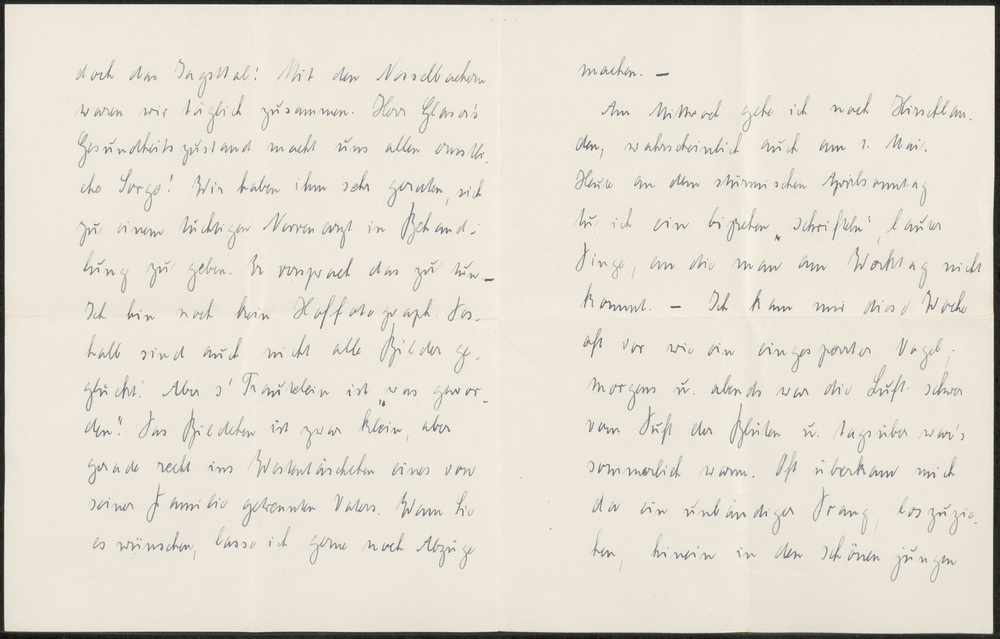 doch das Jagsttal! Mit den Nesselbachern
waren wir täglich zusammen. Herr Glaser's
Gesundheitszustand macht uns allen ernstli-
che Sorge! Wir haben ihm sehr geraten, sich
zu einem tüchtigen Nervenarzt in Behand-
lung zu geben. Er versprach das zu tun –
Ich bin noch kein Hoffotograph. Des-
halb sind auch nicht alle Bilder ge-
glückt! Aber s' Trautelein ist „was gewor-
den“! Das Bildchen ist zwar klein, aber
gerade recht ins Westentäschchen eines von
seiner Familie getrennten Vaters. Wenn Sie
es wünschen, lasse ich gerne noch Abzüge
machen. –
Am Mittwoch gehe ich nach Hirschlan-
den, wahrscheinlich auch am 1. Mai.
Heute an dem stürmischen Aprilsonntag
tu ich ein bisschen „schrifteln“, lauter
Dinge, an die man am Werktag nicht
kommt. – Ich kam mir diese Woche
oft vor wie ein eingesperrter Vogel;
morgens u. abends war die Luft schwer
vom Duft der Blüten u. tagsüber war's
sommerlich warm. Oft überkam mich
da ein unbändiger Drang, loszuzie-
hen, hinein in den schönen jungen